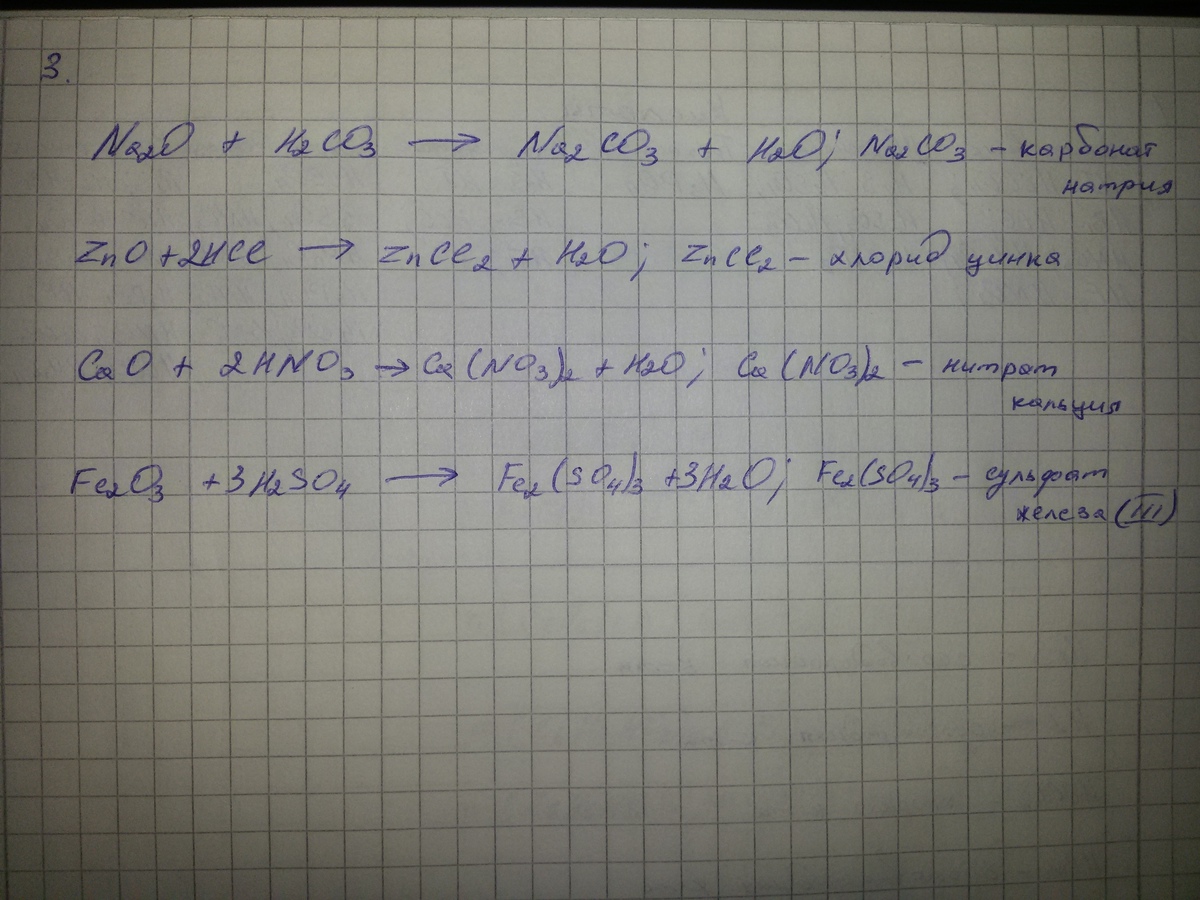 3.
Na2O + H2CO3 → Na2CO3 + H2O; Na2CO3 – карбонат
натрия
ZnO + 2HCl → ZnCl2 + H2O; ZnCl2 – хлорид цинка
CaO + 2HNO3 → Ca(NO3)2 + H2O; Ca(NO3)2 – нитрат
кальция
Fe2O3 + 3H2SO4 → Fe2(SO4)3 + 3H2O; Fe2(SO4)3 – сульфат
железа (III)